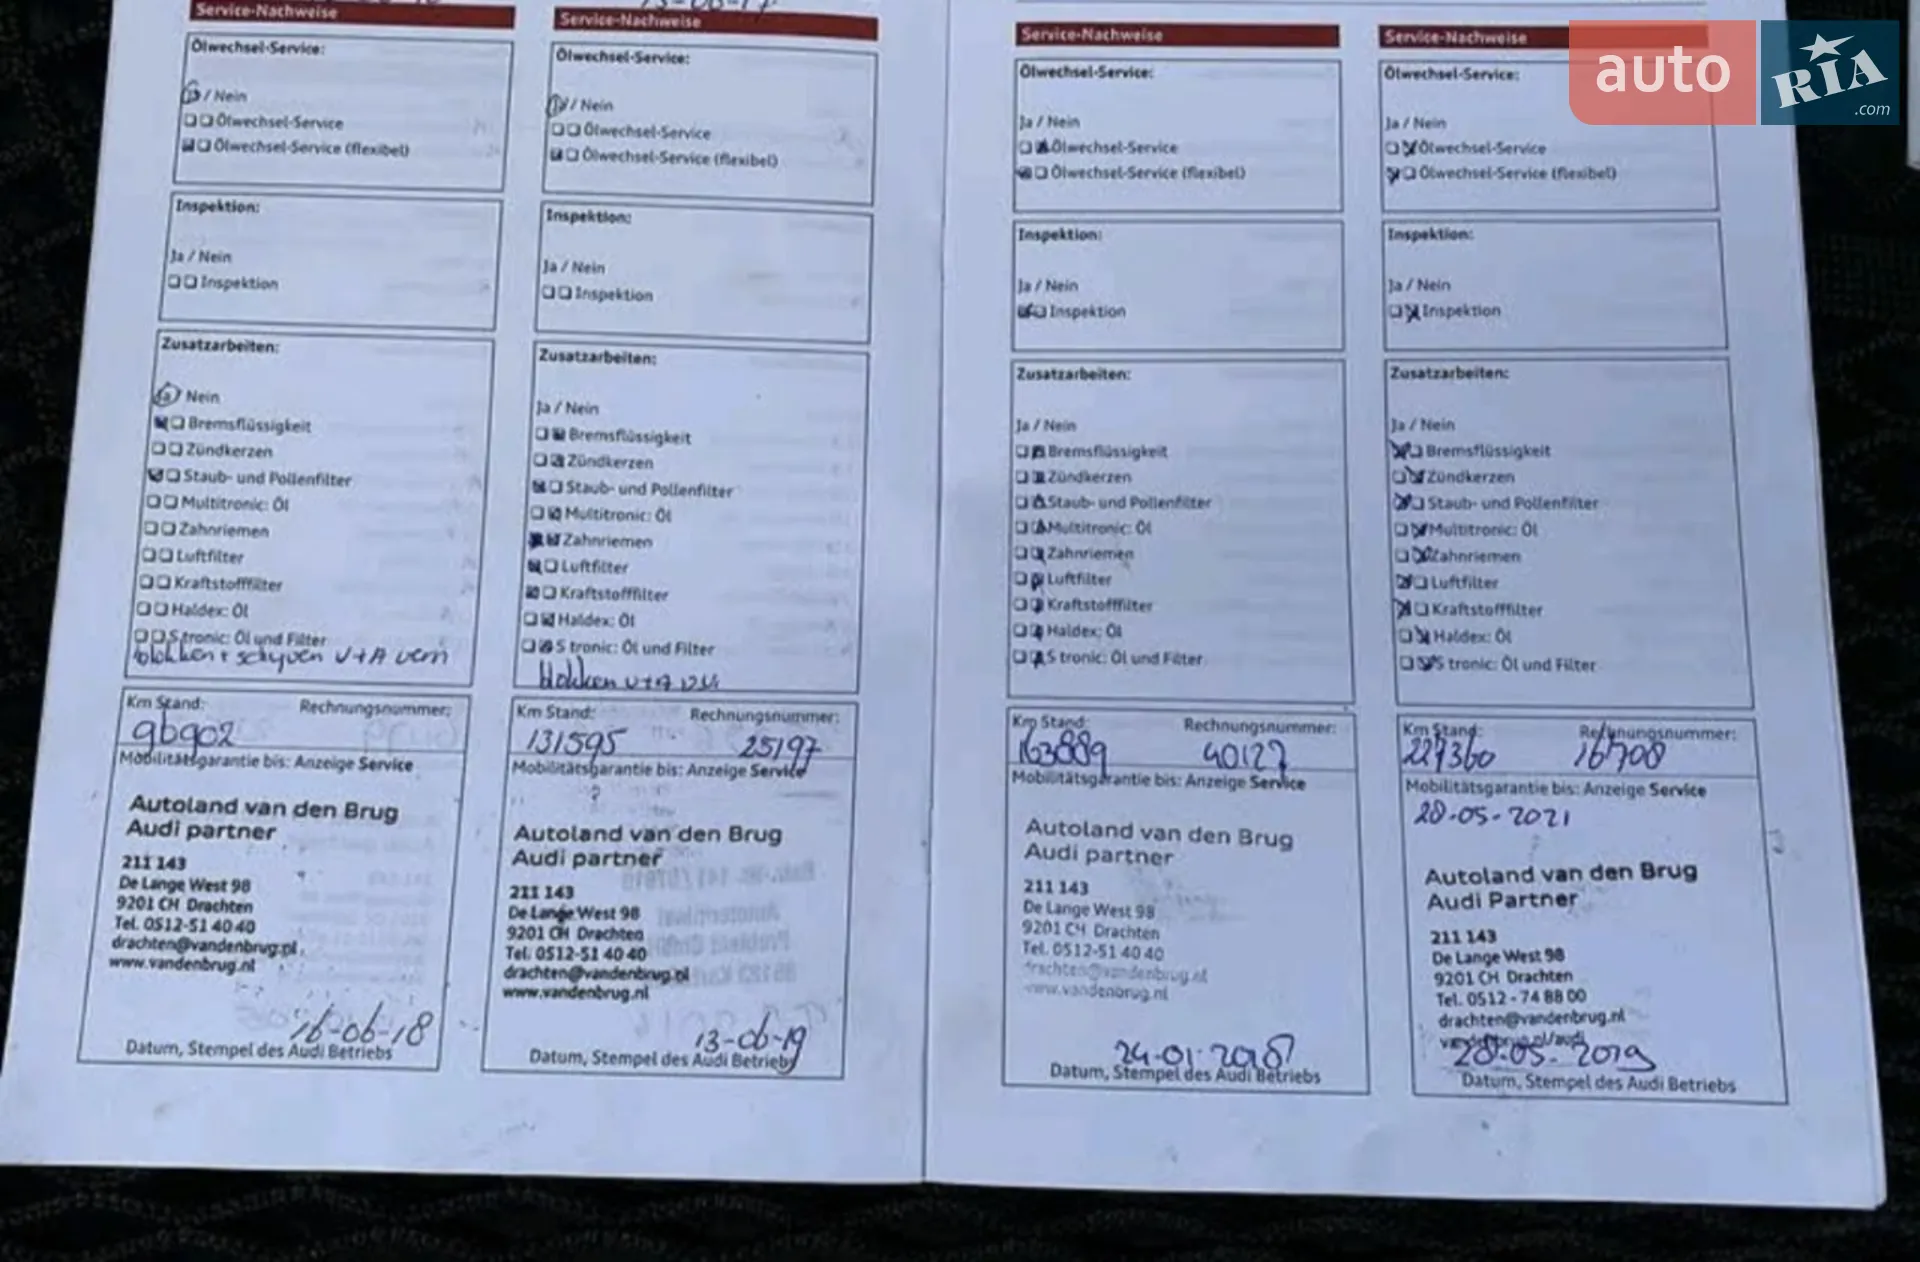 Service-Nachweise
Ölwechsel-Service:
/ Nein
Ölwechsel-Service
Ölwechsel-Service (flexibel)
Inspektion:
Ja / Nein
Inspektion
Zusatzarbeiten:
Ja / Nein
Bremsflüssigkeit
Zündkerzen
Staub- und Pollenfilter
Multitronic: Öl
Zahnriemen
Luftfilter
Kraftstofffilter
Haldex: Öl
S tronic: Öl und Filter
blokken + schyven V+A vern
Km Stand: Rechnungsnummer:
96902
Mobilitätsgarantie bis: Anzeige Service
Autoland van den Brug
Audi partner
211 143
De Lange West 98
9201 CH Drachten
Tel. 0512-51 40 40
drachten@vandenbrug.nl
www.vandenbrug.nl
16-06-18
Datum, Stempel des Audi Betriebs
Service-Nachweise
Ölwechsel-Service:
/ Nein
Ölwechsel-Service
Ölwechsel-Service (flexibel)
Inspektion:
Ja / Nein
Inspektion
Zusatzarbeiten:
Ja / Nein
Bremsflüssigkeit
Zündkerzen
Staub- und Pollenfilter
Multitronic: Öl
Zahnriemen
Luftfilter
Kraftstofffilter
Haldex: Öl
S tronic: Öl und Filter
blokken V+A
Km Stand: Rechnungsnummer:
131595 25197
Mobilitätsgarantie bis: Anzeige Service
Autoland van den Brug
Audi partner
211 143
De Lange West 98
9201 CH Drachten
Tel. 0512-51 40 40
drachten@vandenbrug.nl
www.vandenbrug.nl
13-06-19
Datum, Stempel des Audi Betriebs
Service-Nachweise
Ölwechsel-Service:
Ja / Nein
Ölwechsel-Service
Ölwechsel-Service (flexibel)
Inspektion:
Ja / Nein
Inspektion
Zusatzarbeiten:
Ja / Nein
Bremsflüssigkeit
Zündkerzen
Staub- und Pollenfilter
Multitronic: Öl
Zahnriemen
Luftfilter
Kraftstofffilter
Haldex: Öl
S tronic: Öl und Filter
Km Stand: Rechnungsnummer:
163889 40127
Mobilitätsgarantie bis: Anzeige Service
Autoland van den Brug
Audi partner
211 143
De Lange West 98
9201 CH Drachten
Tel. 0512-51 40 40
drachten@vandenbrug.nl
www.vandenbrug.nl
24-01-2018
Datum, Stempel des Audi Betriebs
Service-Nachweise
Ölwechsel-Service:
Ja / Nein
Ölwechsel-Service
Ölwechsel-Service (flexibel)
Inspektion:
Ja / Nein
Inspektion
Zusatzarbeiten:
Ja / Nein
Bremsflüssigkeit
Zündkerzen
Staub- und Pollenfilter
Multitronic: Öl
Zahnriemen
Luftfilter
Kraftstofffilter
Haldex: Öl
S tronic: Öl und Filter
Km Stand: Rechnungsnummer:
227360 16708
Mobilitätsgarantie bis: Anzeige Service
28-05-2021
Autoland van den Brug
Audi Partner
211 143
De Lange West 98
9201 CH Drachten
Tel. 0512 - 74 88 00
drachten@vandenbrug.nl
vandenbrug.nl/audi
28-05-2019
Datum, Stempel des Audi Betriebs
auto RIA
.com